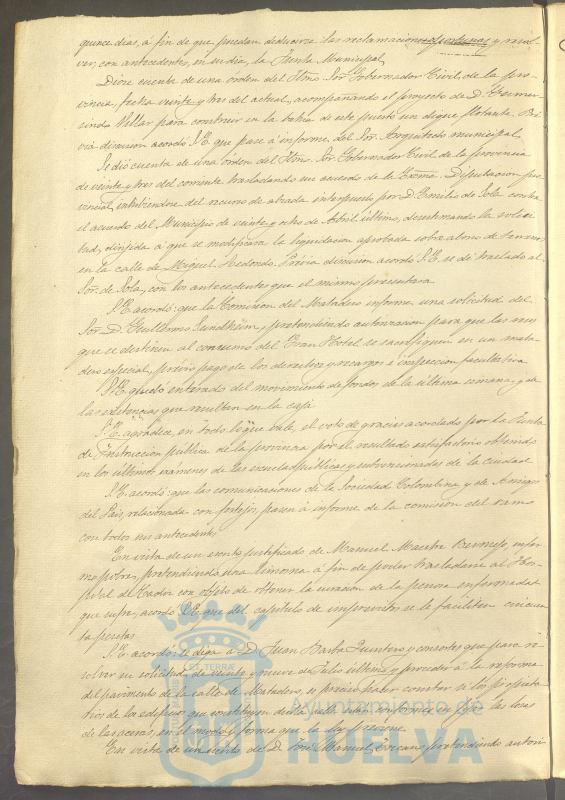 quince dias, á fin de que puedan deducirse las reclamaciones y resol-
ver, con antecedentes, en su dia, la Junta Municipal.
Diose cuenta de una orden del Iltmo Sor. Gobernador Civil de la pro-
vincia, fecha veinte y tres del actual, acompañando el proyecto de D. Gumer-
sindo Villar para construir en la bahia de este puerto un dique flotante. Pré-
via discusion acordó S.E. que pase á informe del Sor. Arquitecto municipal.
Se dió cuenta de una orden del Iltmo Sor. Gobernador Civil de la provincia
de veinte y tres del corriente trasladando un acuerdo de la Excma. Diputacion pro-
vincial, inhibiendose del recurso de alzada interpuesto por D. Emilio de Sola contra
el acuerdo del Municipio de veinte y ocho de Abril último, desestimando la solici-
tud, dirigida á que se modificara la liquidacion aprobada sobre abono de terrenos
en la calle de Miguel Redondo. Prévia discusion acordó S.E. se dé traslado al
Sor. de Sola, con los antecedentes que el mismo presentara
S.E. acordó: que la Comision del Matadero informe una solicitud del
Sor. D. Guillermo Sundheim, pretendiendo autorizacion para que las reses
que se destinen al consumo del Gran Hotel se sacrifiquen en un mata-
dero especial, prévio pago de los derechos y recargos é inspeccion facultativa
S.E. quedó enterado del movimiento de fondos de la última semana, y de
las existencias que resulten en la caja
S.E. agradece, en todo lo que vale, el voto de gracias acordado por la Junta
de instruccion pública de la provincia por el resultado satisfactorio obtenido
en los últimos exámenes de las escuelas públicas y subvencionadas de la ciudad
S.E. acordó: que las comunicaciones de la Sociedad Colombina y de Amigos
del Pais, relacionada con festejos, pasen á informe de la comision del ramo
con todos sus antecedentes
En vista de un escrito justificado de Manuel Maestre Bermejo, enfer-
mo pobre, pretendiendo una limosna á fin de poder trasladarse al Hos-
pital de Cadiz con objeto de obtener la curacion de la penosa enfermedad
que sufre, acordó S.E. que del capitulo de imprevistos se le faciliten cincuen-
ta pesetas
S.E. acordó: se diga á D. Juan Barba Quintero y consortes que para re-
solver su solicitud de veinte y nueve de Julio último y proceder á la reforma
del pavimento de la calle de Matadero, es preciso hacer constar si los propieta-
rios de los edificios que constituyen dicha calle estan conformes en pagar las losas
de las aceras, en el modo y forma que la ley previene.
En vista de un escrito de D. José Manuel pretendiendo autori-
ET TERRÆ
Ayuntamiento de
HUELVA